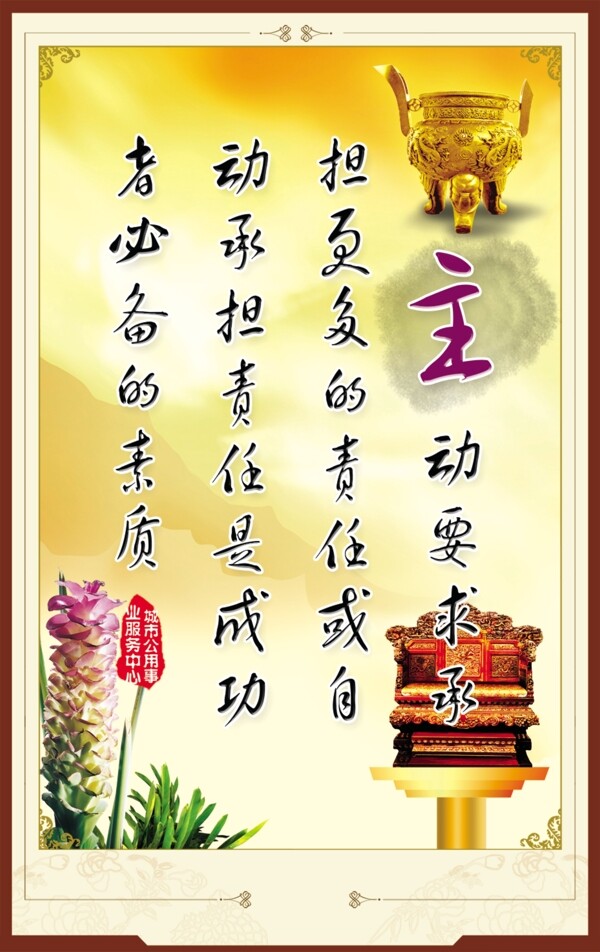 主动要求承
担更多的责任或自
动承担责任是成功
者必备的素质
城市公用事
业服务中心